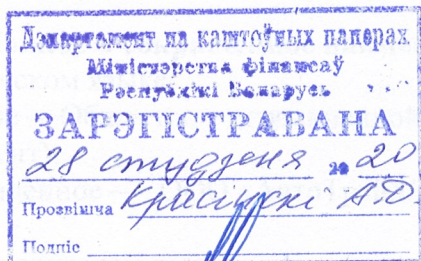 Дэпартамент па каштоўных паперах
Міністэрства фінансаў
Рэспублікі Беларусь
ЗАРЭГІСТРАВАНА
28 студзеня 2020
Прозвішча Красінскі А.Ф.
Подпіс